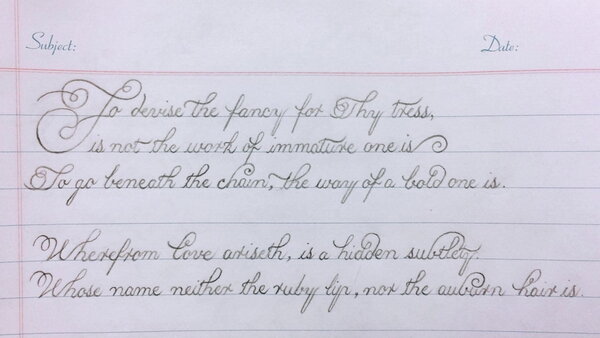 Subject: Date:
To devise the fancy for Thy tress,
is not the work of immature one is
To go beneath the chain, the way of a bold one is.
Wherefrom Love ariseth, is a hidden subtlety.
Whose name neither the ruby lip, nor the auburn hair is.